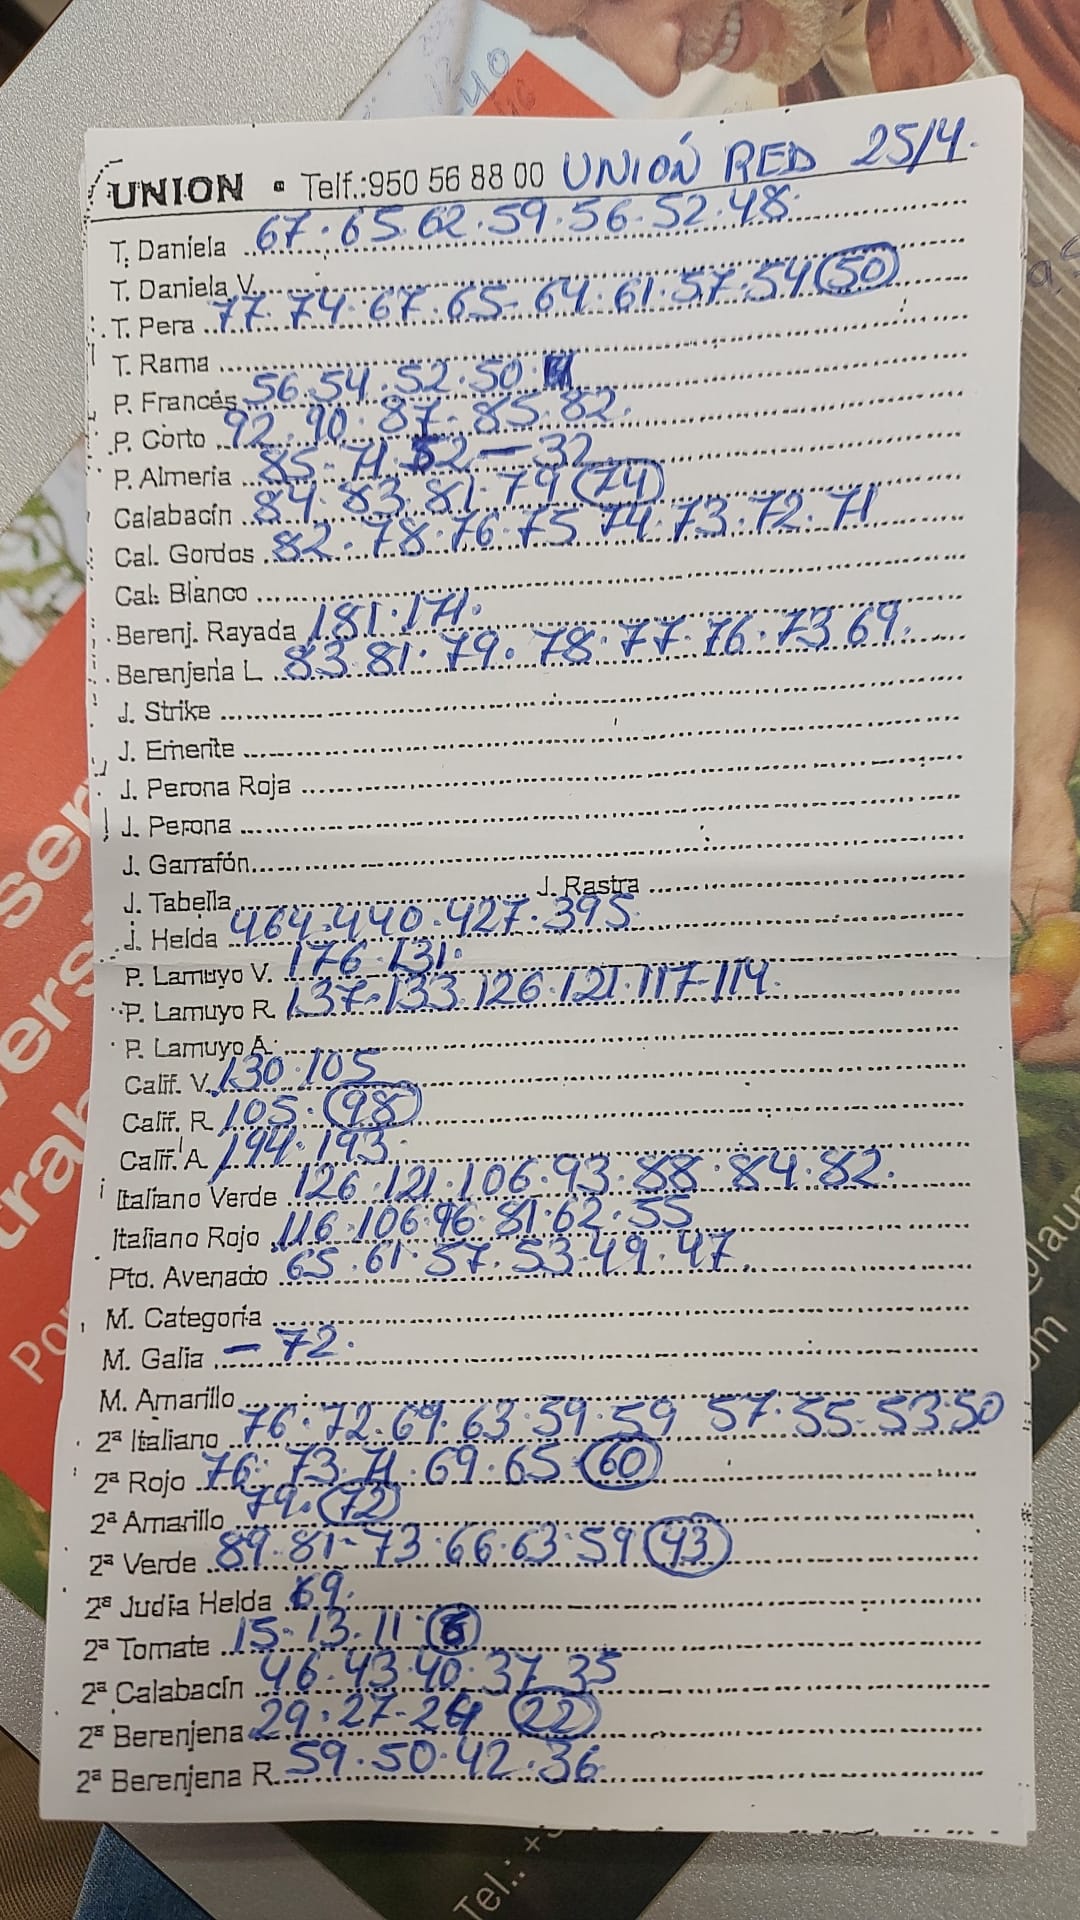 UNION • Telf.:950 56 88 00 UNIÓN RED 25/4.
T. Daniela 67.65.62.59.56.52.48.
T. Daniela V.
T. Pera 77.74.67.65-64.61.57.54 (50)
T. Rama
P. Francés 56.54.52.50.
P. Corto 92.90.87.85.82.
P. Almeria 85-71.52-32
Calabacín 84.83.81.79 (74)
Cal. Gordos 82.78.76.75 74.73.72.71
Cal. Blanco
Berenj. Rayada 181.171.
Berenjena L 83.81.79.78.77.76.73 69.
J. Strike
J. Emerite
J. Perona Roja
J. Perona
J. Garrafón
J. Tabella J. Rastra
J. Helda 464.440.427.395
P. Lamuyo V. 176.131.
P. Lamuyo R. 137-133.126.121.117-114.
P. Lamuyo A.
Calif. V. 130.105
Calif. R 105.(98)
Calif. A 194.193.
Italiano Verde 126.121.106.93.88.84.82.
Italiano Rojo 116.106.96.81.62.55
Pto. Avenado 65.61.57.53.49.47.
M. Categoria
M. Galia - 72.
M. Amarillo
2ª Italiano 76.72.69.63.59.59 57.55-53.50
2ª Rojo 76.73.71.69.65 (60)
2ª Amarillo 79.(72)
2ª Verde 89.81-73.66.63.59 (43)
2ª Judía Helda 69.
2ª Tomate 15-13.11
2ª Calabacín 46.43.40.37.35
2ª Berenjena 29.27-24 (22)
2ª Berenjena R 59.50.42.36.
Tel.: +3